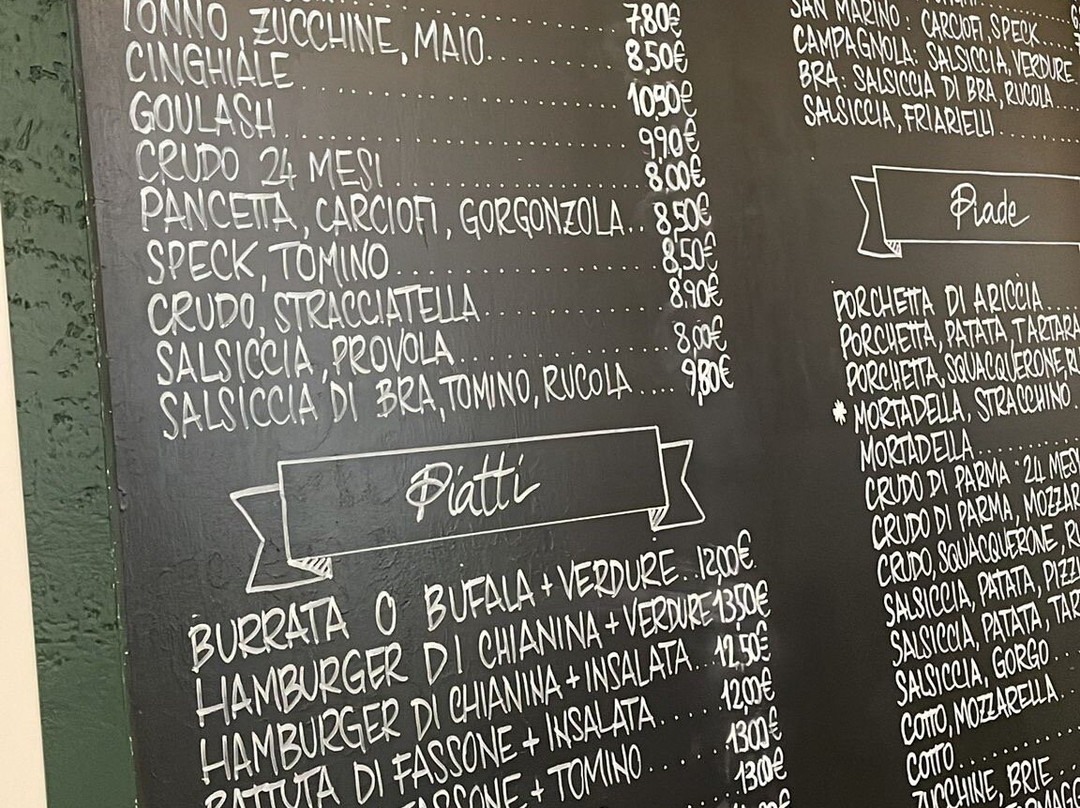 7,80€
TONNO, ZUCCHINE, MAIO 8,50€
CINGHIALE 10,90€
GOULASH 9,90€
CRUDO 24 MESI 8,00€
PANCETTA, CARCIOFI, GORGONZOLA.. 8,50€
SPECK, TOMINO 8,50€
CRUDO, STRACCIATELLA 8,90€
SALSICCIA, PROVOLA 8,00€
SALSICCIA DI BRA, TOMINO, RUCOLA .... 9,80€
Piatti
BURRATA O BUFALA + VERDURE.. 12,00€
HAMBURGER DI CHIANINA + VERDURE 13,50€
HAMBURGER DI CHIANINA + INSALATA... 12,50€
BATTUTA DI FASSONE + INSALATA..... 12,00€
FASSONE + TOMINO..... 13,00€
13,00€
SAN MARINO: CARCIOFI, SPECK
CAMPAGNOLA: SALSICCIA, VERDURE
BRA: SALSICCIA DI BRA, RUCOLA
SALSICCIA, FRIARIELLI
Piade
PORCHETTA DI ARICCIA
PORCHETTA, PATATA, TARTARA
PORCHETTA, SQUACQUERONE, RU
* MORTADELLA, STRACCHINO
MORTADELLA
CRUDO DI PARMA "24 MESI
CRUDO DI PARMA, MOZZAR
CRUDO, SQUACQUERONE, RU
SALSICCIA, PATATA, PIZZI
SALSICCIA, PATATA, TAR
SALSICCIA, GORGO
COTTO, MOZZARELLA
COTTO
ZUCCHINE, BRIE